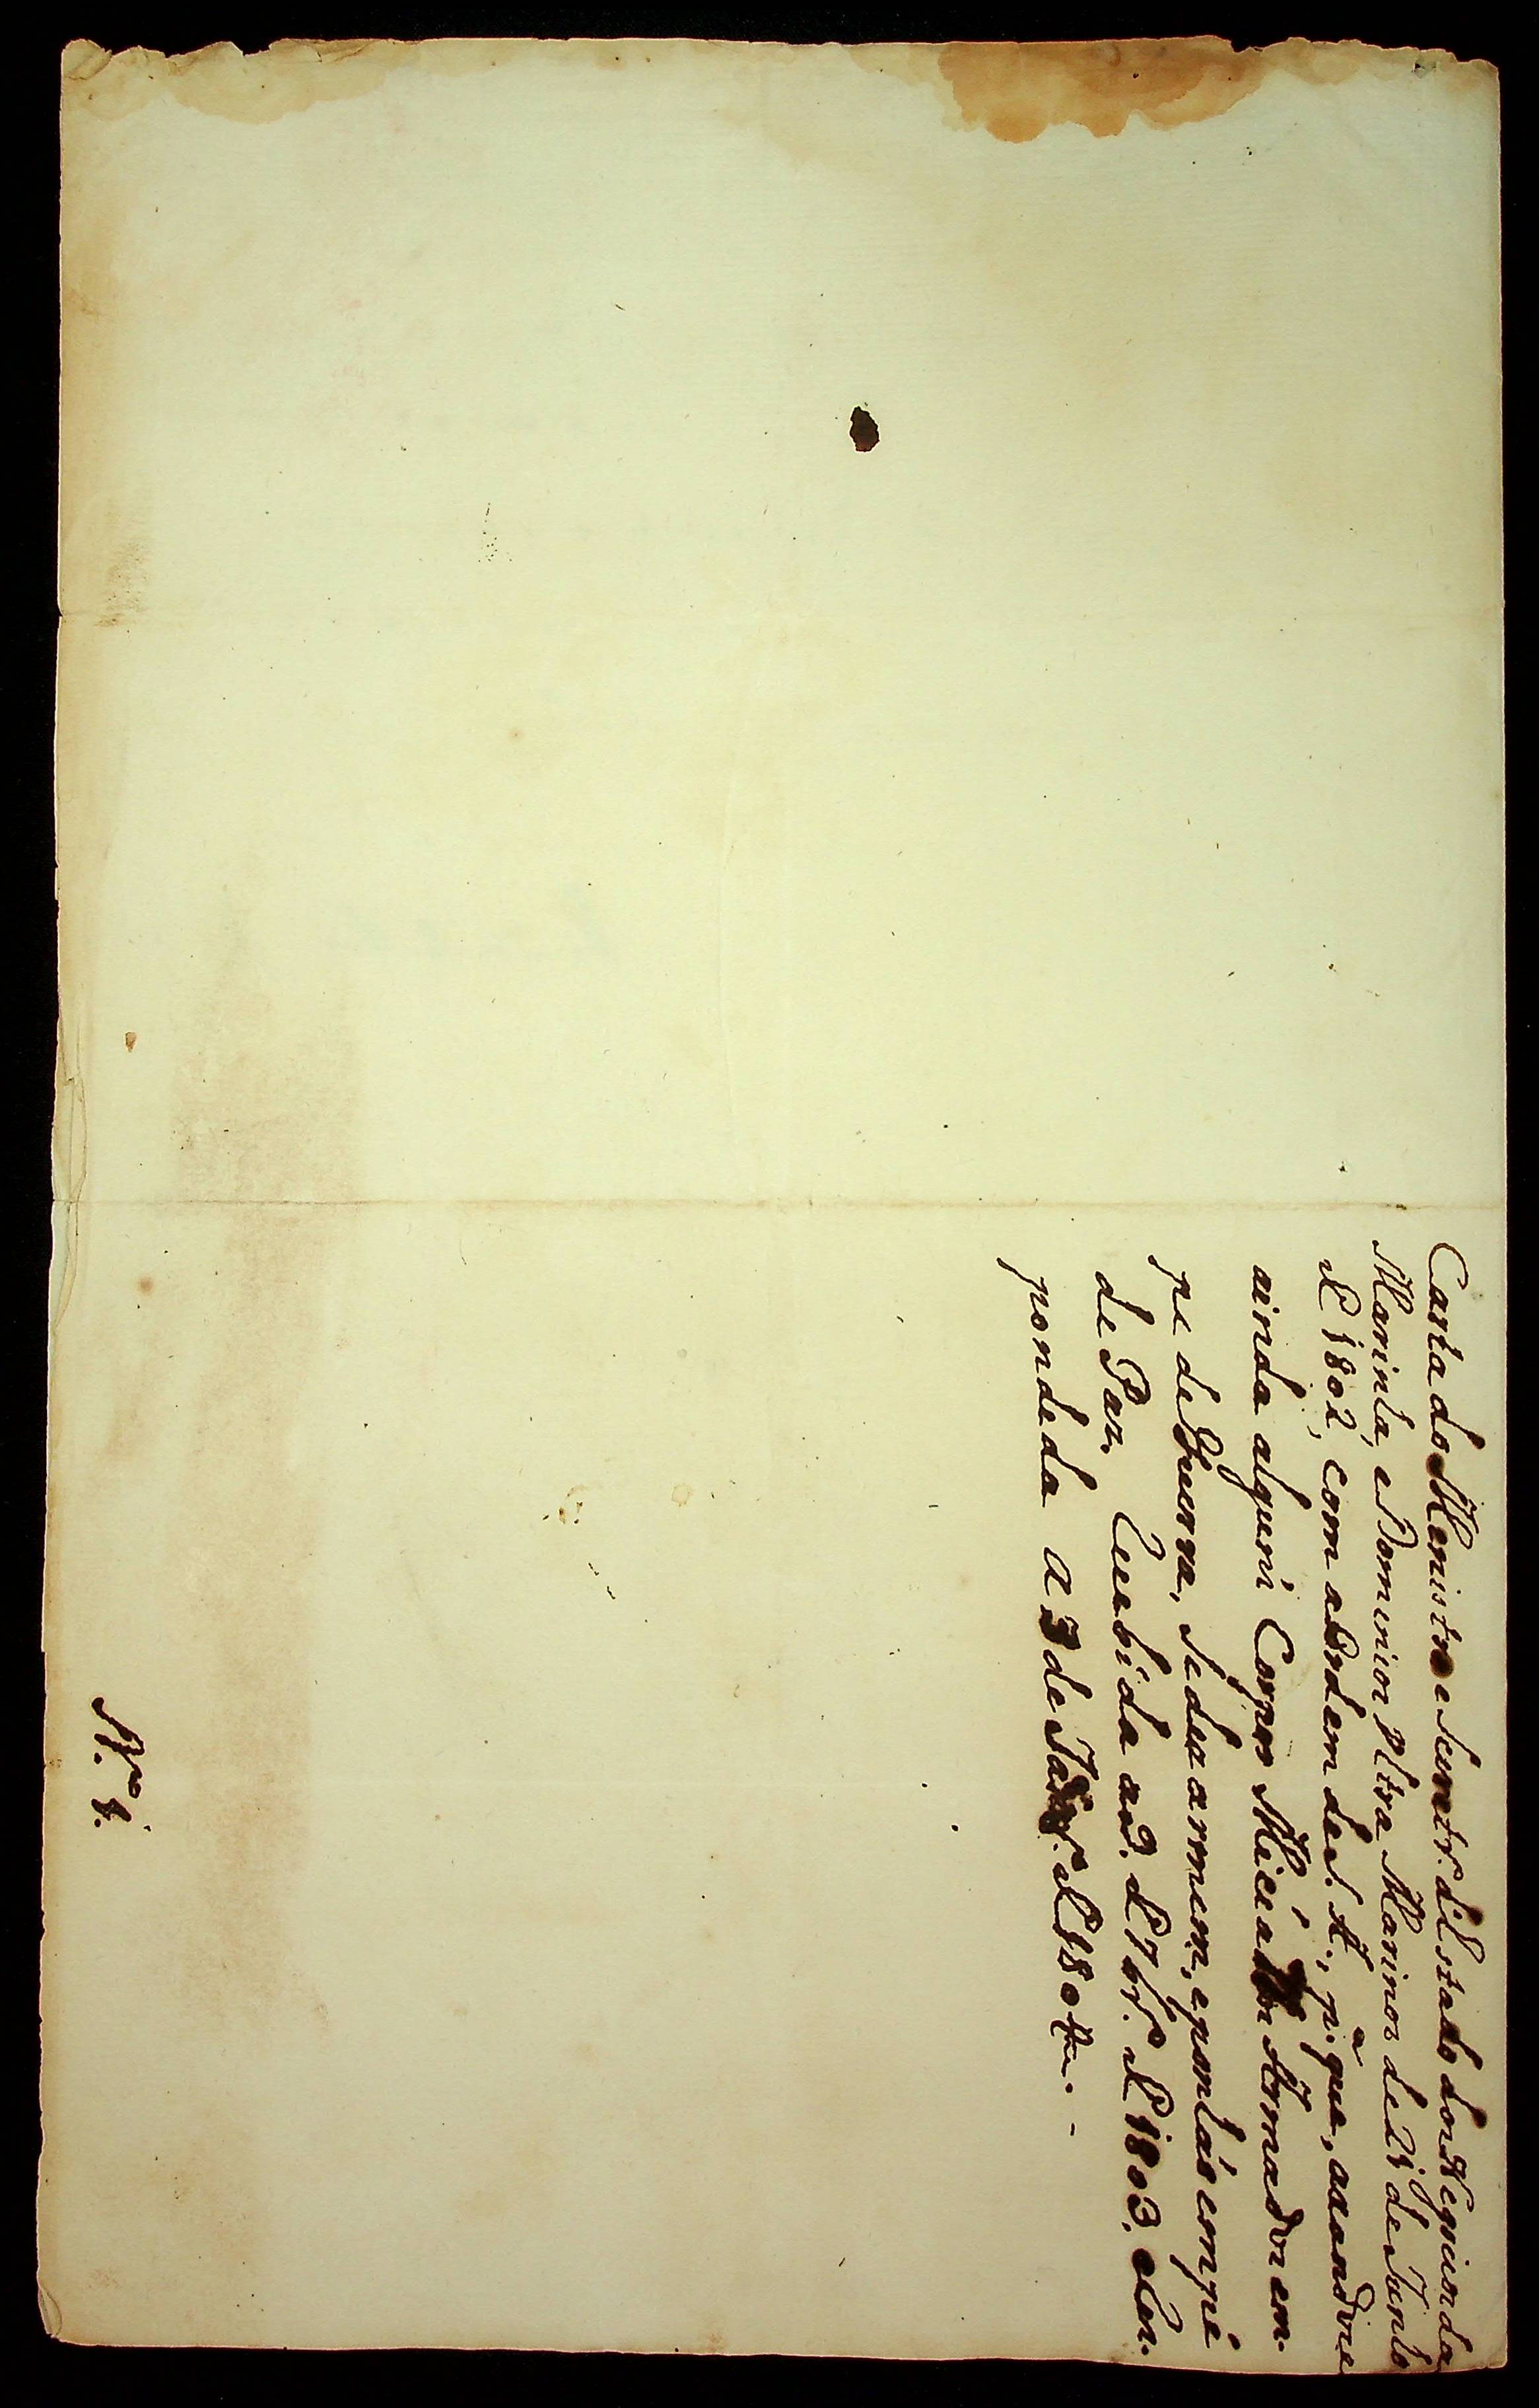 Carta do Menistro e Secretr.º d'Estado dos Negocios da
Marinha, e Dominios Ultra Marinos de 21 de Junho
de 1802, com a Ordem de S. A., p.ª que, achandose
ainda alguns Corpos Meciados Armados em
pe de Guerra, se desarmem, e ponhaõ em pé
de Paz. Recebida a de 7br.º de 1803. e Res-
pondeda a 3 de de 180
N.º 1.